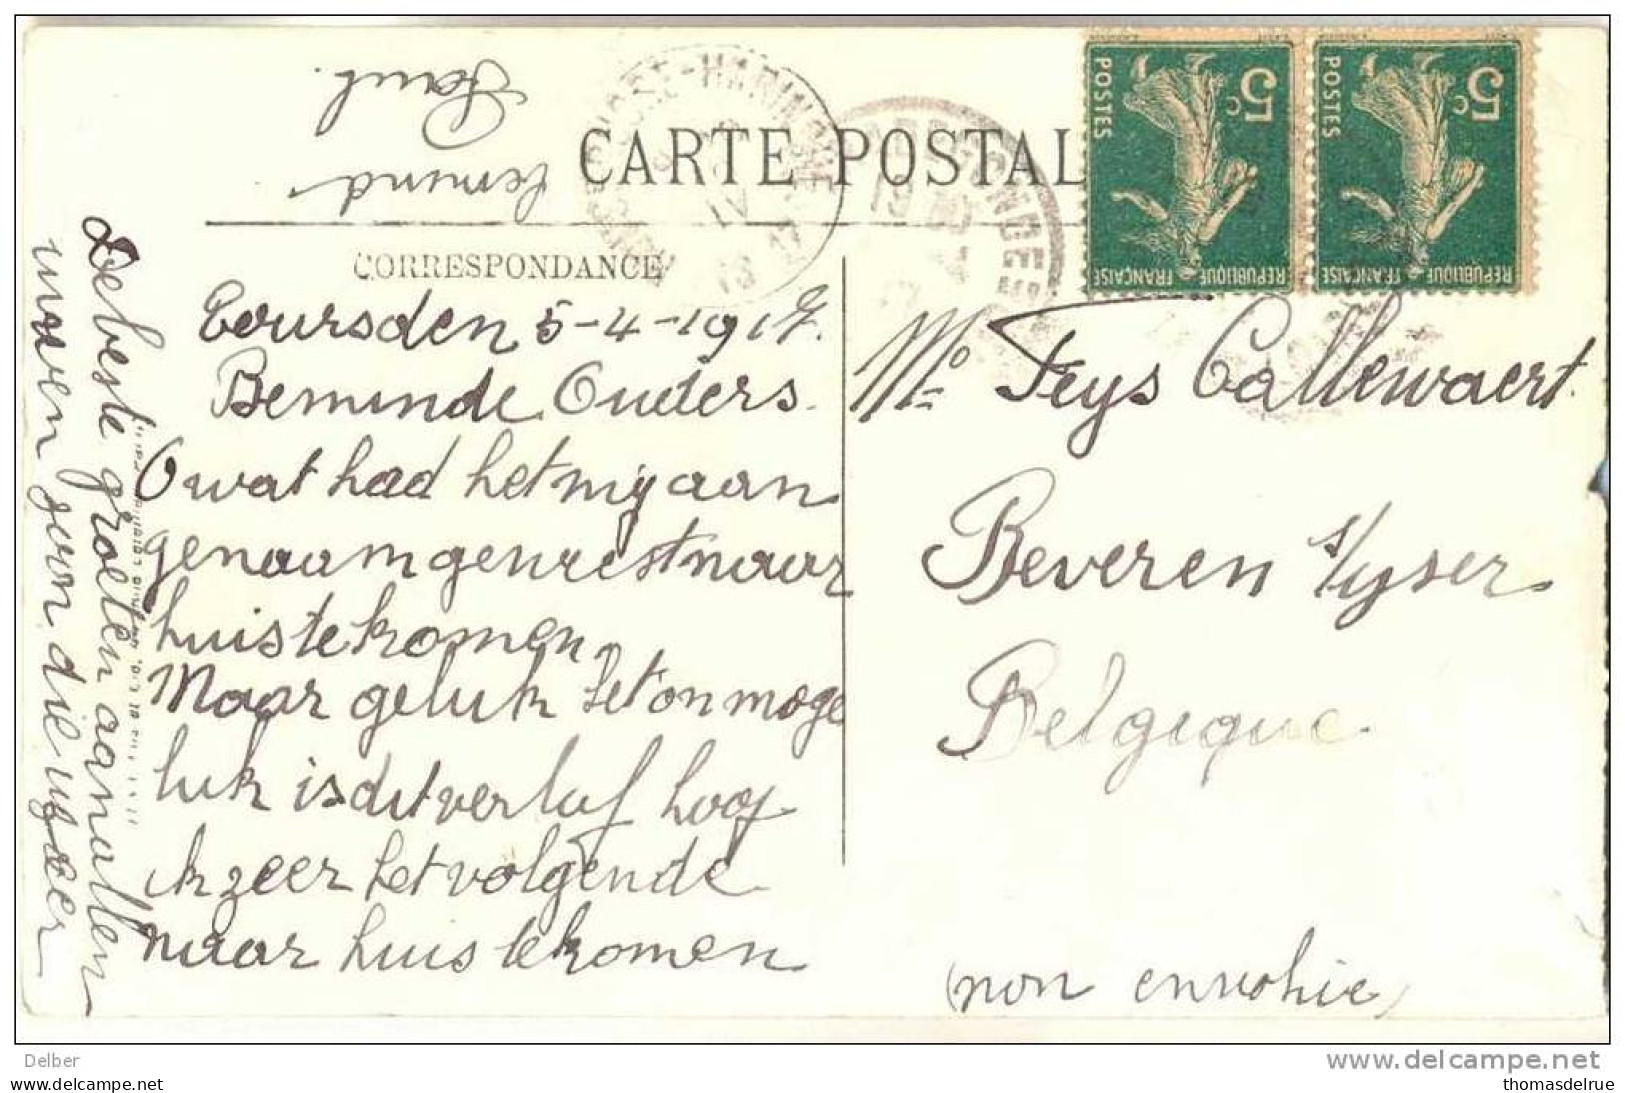 CARTE POSTAL
CORRESPONDANCE
Coursden 5-4-1917.
Beminde Ouders.
O wat had het mij aan
genaam geweest naar
huis te komen
Maar geluk het onmoge
luk is dit verluf hoop
ik zeer het volgende
naar huis te komen
De beste groeten aan allen
uwen zoon die u zeer
bemind
Paul.
Mr Feys Callewaert.
Beveren s/yser
Belgique
(non envohie)
5c
POSTES
REPUBLIQUE FRANÇAISE
5c
POSTES
REPUBLIQUE FRANÇAISE
Delber
www.delcampe.net
thomasdelrue